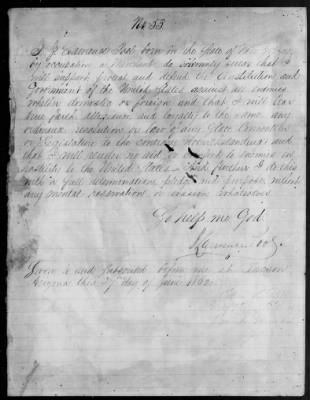 No 33
I, J. Clarence born in the State of New
by occupation a Merchant do solemnly swear that I
will support protect and defend the Constitution and
Government of the United States against all enemies
whether domestic or foreign and that I will bear
true faith allegiance and loyalty to the same any
ordinance resolution or law of any State Convention
or Legislation to the contrary notwithstanding and
that I will render no aid or comfort to enemies in
hostility to the United States. And further I do this
with a full determination pledge and purpose without
any mental reservation or evasion whatsoever
So help me God
J Clarence
Sworn to and Subscribed before me at Tucson
Arizona this day of June 1862